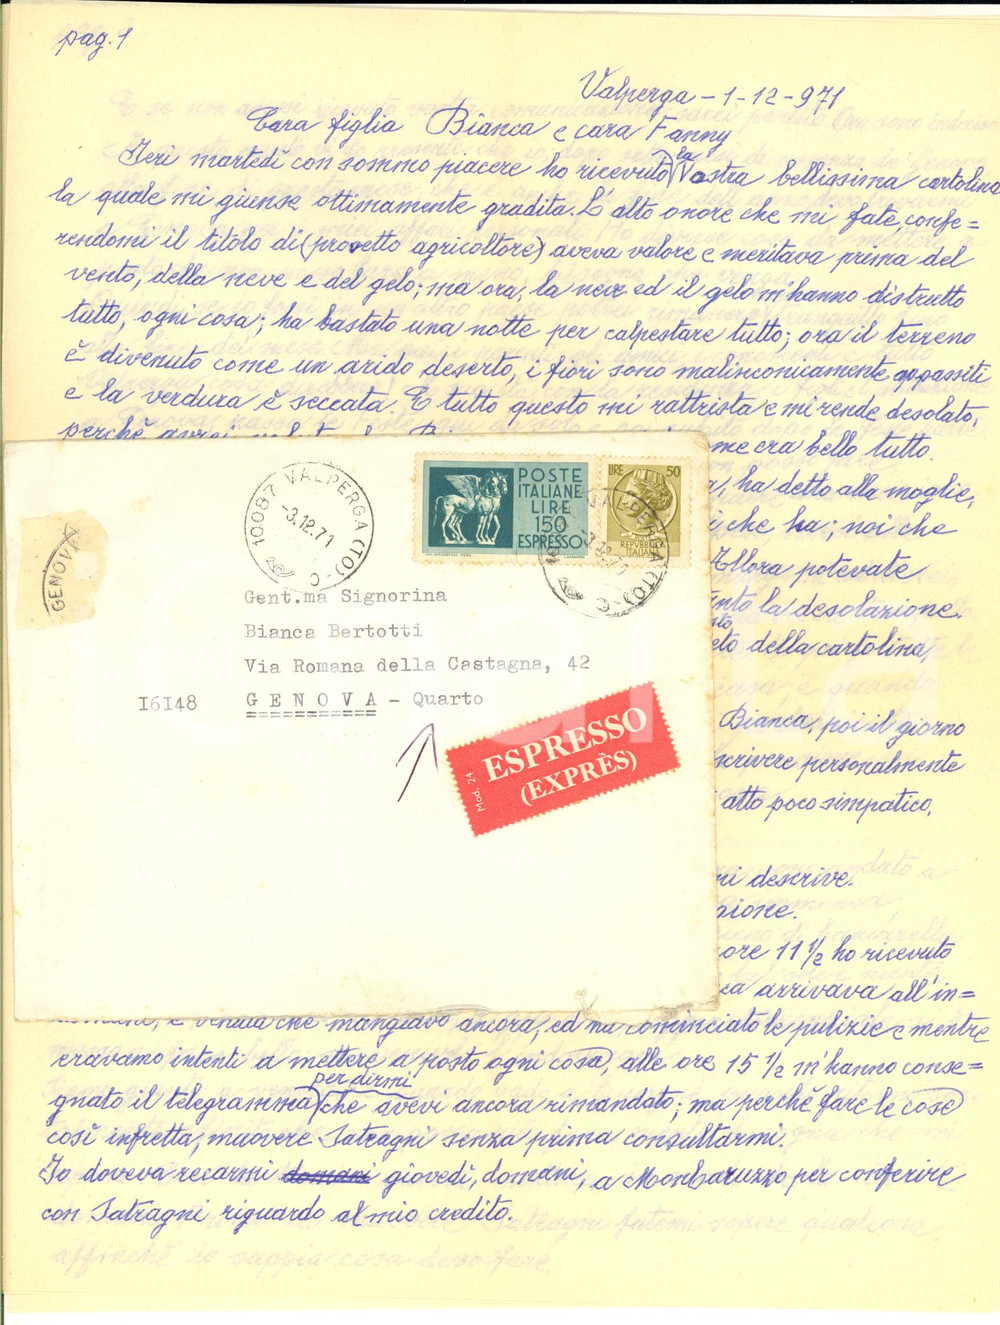 pag. 1
Valperga - 1 - 12 - 971
Cara figlia Bianca e cara Fanny
Ieri martedì con sommo piacere ho ricevuto la Vostra bellissima cartolina
la quale mi giunse ottimamente gradita. L'alto onore che mi fate, confe=
rendomi il titolo di (provetto agricoltore) aveva valore e meritava prima del
vento, della neve e del gelo; ma ora, la neve ed il gelo m'hanno distrutto
tutto, ogni cosa; ha bastato una notte per calpestare tutto; ora il terreno
è divenuto come un arido deserto, i fiori sono malinconicamente appassiti
e la verdura è seccata. E tutto questo mi rattrista e mi rende desolato,
perchè
me era bello tutto.
, ha detto alla moglie,
i che ha; noi che
Allora potevate
nto la desolazione.
eto della cartolina,
casa, e quando
Bianca, poi il giorno
scrivere personalmente
atto poco simpatico,
ri descrive.
gione.
ore 11 1/2 ho ricevuto
ca arrivava all'in=
domani, è venuta che mangiavo ancora, ed ha cominciato le pulizie e mentre
eravamo intenti a mettere a posto ogni cosa, alle ore 15 1/2 m'hanno conse=
gnato il telegramma per dirmi che avevi ancora rimandato; ma perchè fare le cose
così infretta, muovere Satragni senza prima consultarmi.
Io doveva recarmi domani giovedì, domani, a Mombaruzzo per conferire
con Satragni, riguardo al mio credito.
10087 VALPERGA (TO)
-3.12.71
GENOVA
POSTE
ITALIANE
LIRE
150
ESPRESSO
LIRE 50
REPUBBLICA
ITALIANA
Gent.ma Signorina
Bianca Bertotti
Via Romana della Castagna, 42
16148 GENOVA - Quarto
ESPRESSO
(EXPRÈS)
Mod. 24